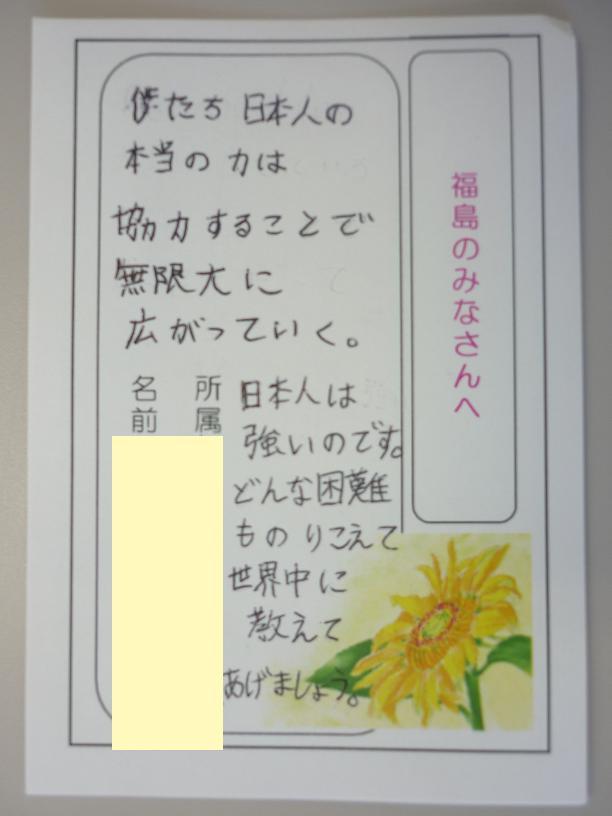 福島のみなさんへ
僕たち 日本人の
本当の 力は
協力することで
無限大に
広がっていく。
所属
名前
日本人は
強いのです。
どんな困難
ものりこえて
世界中に
教えて
あげましょう。